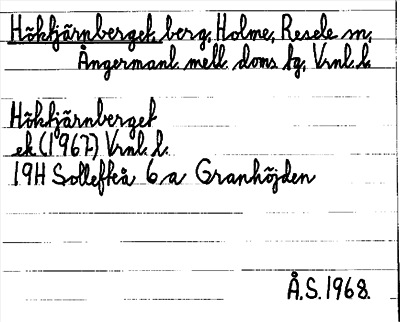 Hökjärnberget, berg, Holme, Resele sn,
Ångermanl. mell. doms. lg, Vrnl. l.
Hökjärnberget
ek (1967) Vrnl. l.
19H Sollefteå 6 a Granhöjden
Å.S. 1968.